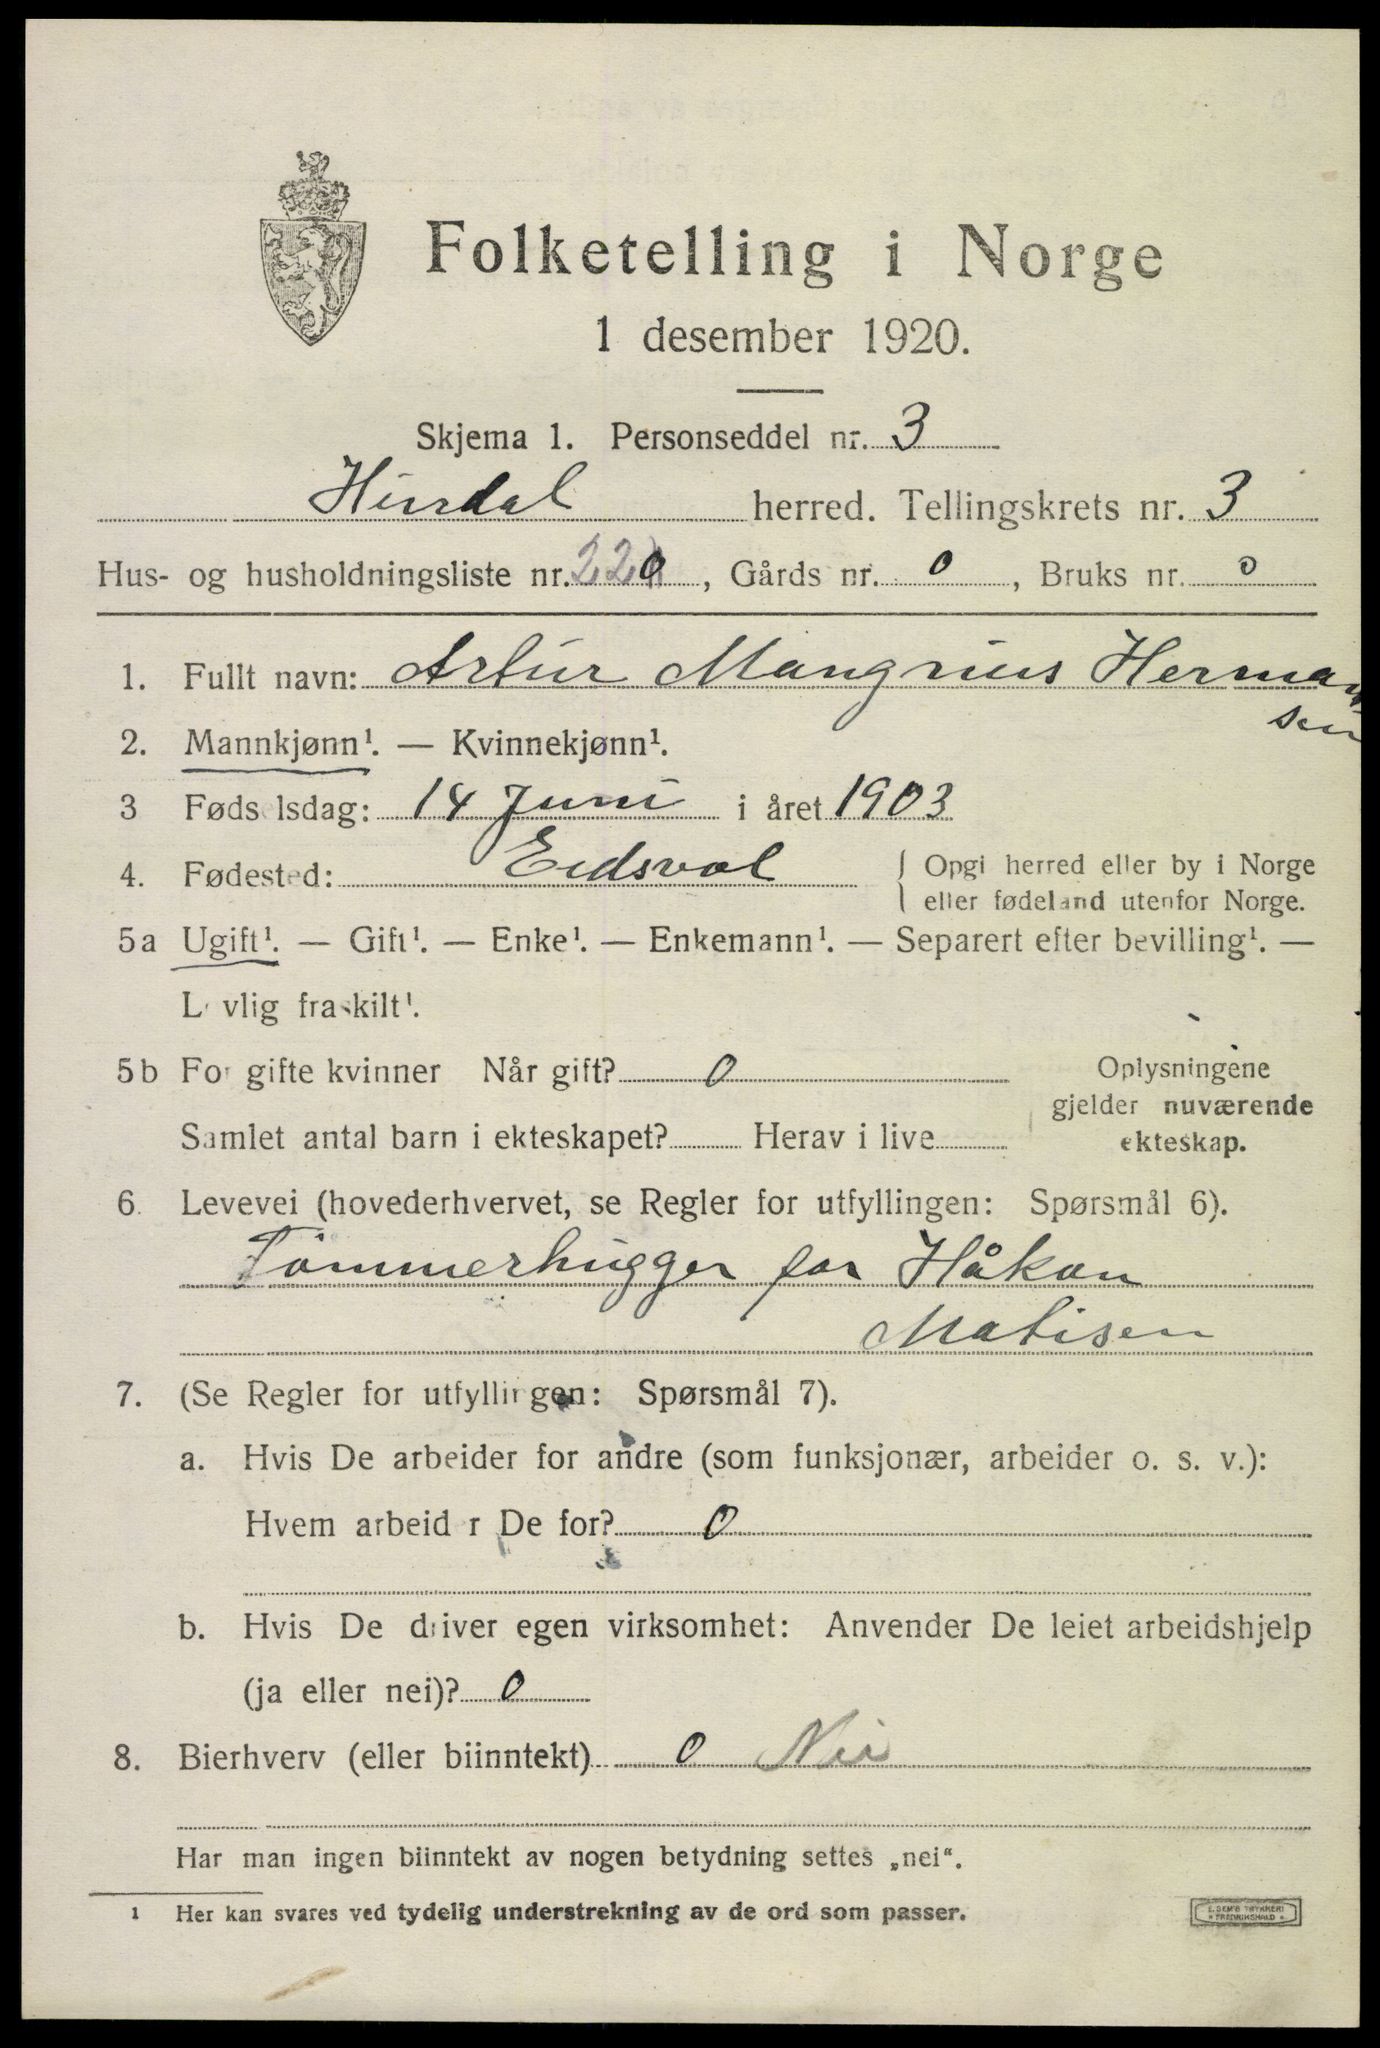 Folketelling i Norge
1 desember 1920.
Skjema 1. Personseddel nr. 3
Hurdal herred. Tellingskrets nr. 3
Hus- og husholdningsliste nr. 220, Gårds nr. 0, Bruks nr. 0
1. Fullt navn: Artur Mangnus Herman
sen
2. Mannkjønn¹. — Kvinnekjønn¹.
3 Fødselsdag: 14 Juni i året 1903
4. Fødested: Eidsvol { Opgi herred eller by i Norge
eller fødeland utenfor Norge.
5a Ugift¹. — Gift¹. — Enke¹. — Enkemann¹. — Separert efter bevilling¹. —
Lovlig fraskilt¹.
5b For gifte kvinner Når gift? 0 Oplysningene
gjelder nuværende
Samlet antal barn i ekteskapet? Herav i live ekteskap.
6. Levevei (hovederhvervet, se Regler for utfyllingen: Spørsmål 6).
Tømmerhugger for Håkon
Matisen
7. (Se Regler for utfyllingen: Spørsmål 7).
a. Hvis De arbeider for andre (som funksjonær, arbeider o. s. v.):
Hvem arbeider De for? 0
b. Hvis De driver egen virksomhet: Anvender De leiet arbeidshjelp
(ja eller nei)? 0
8. Bierhverv (eller biinntekt) 0 Nei
Har man ingen biinntekt av nogen betydning settes „nei“.
1 Her kan svares ved tydelig understrekning av de ord som passer.
E. SEM'S TRYKKERI
* FREDRIKSHALD *